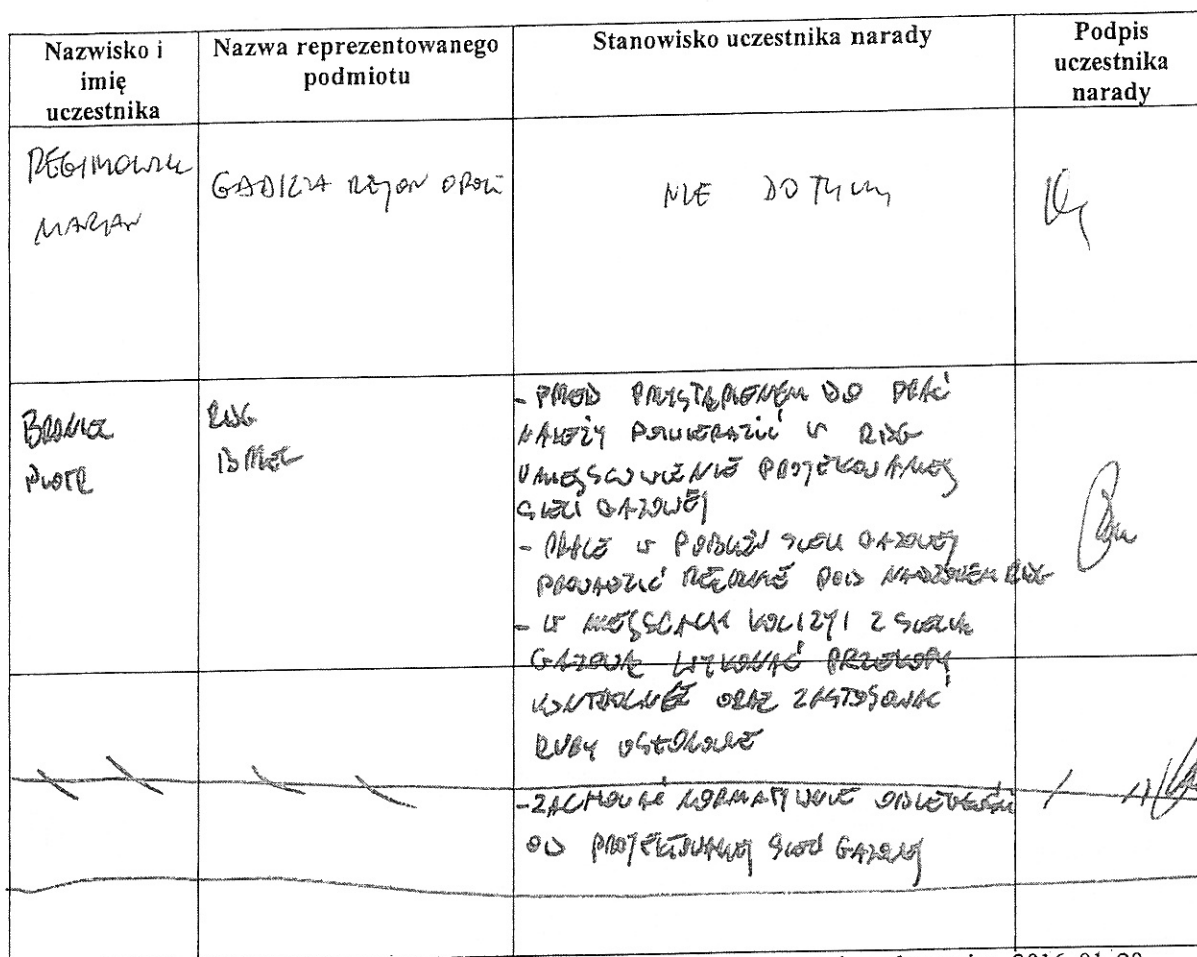 Nazwisko i
imię
uczestnika
Nazwa reprezentowanego
podmiotu
Stanowisko uczestnika narady
Podpis
uczestnika
narady
MARIAN
REJON
NIE
PIOTR
RDG
BRZEG
- PRZED PRZYSTĄPIENIEM DO PRAC
NALEŻY POTWIERDZIĆ W RDG
UMIEJSCOWIENIE PROJEKOWANEJ
SIECI GAZOWEJ
- PRACE W POBLIŻU SIECI GAZOWEJ
PROWADZIĆ RĘCZNIE POD NADZOREM RDG
- W MIEJSCACH KOLIZYI Z SIECIĄ
GAZOWĄ WYKONAĆ PRZEKOPY
KONTROLNE ORAZ ZASTOSOWAĆ
RURY OSŁONOWE
- ZACHOWAĆ NORMATYWNE ODLEGŁOŚCI
OD PROJEKTOWANEJ SIECI GAZOWEJ
2016-01-20